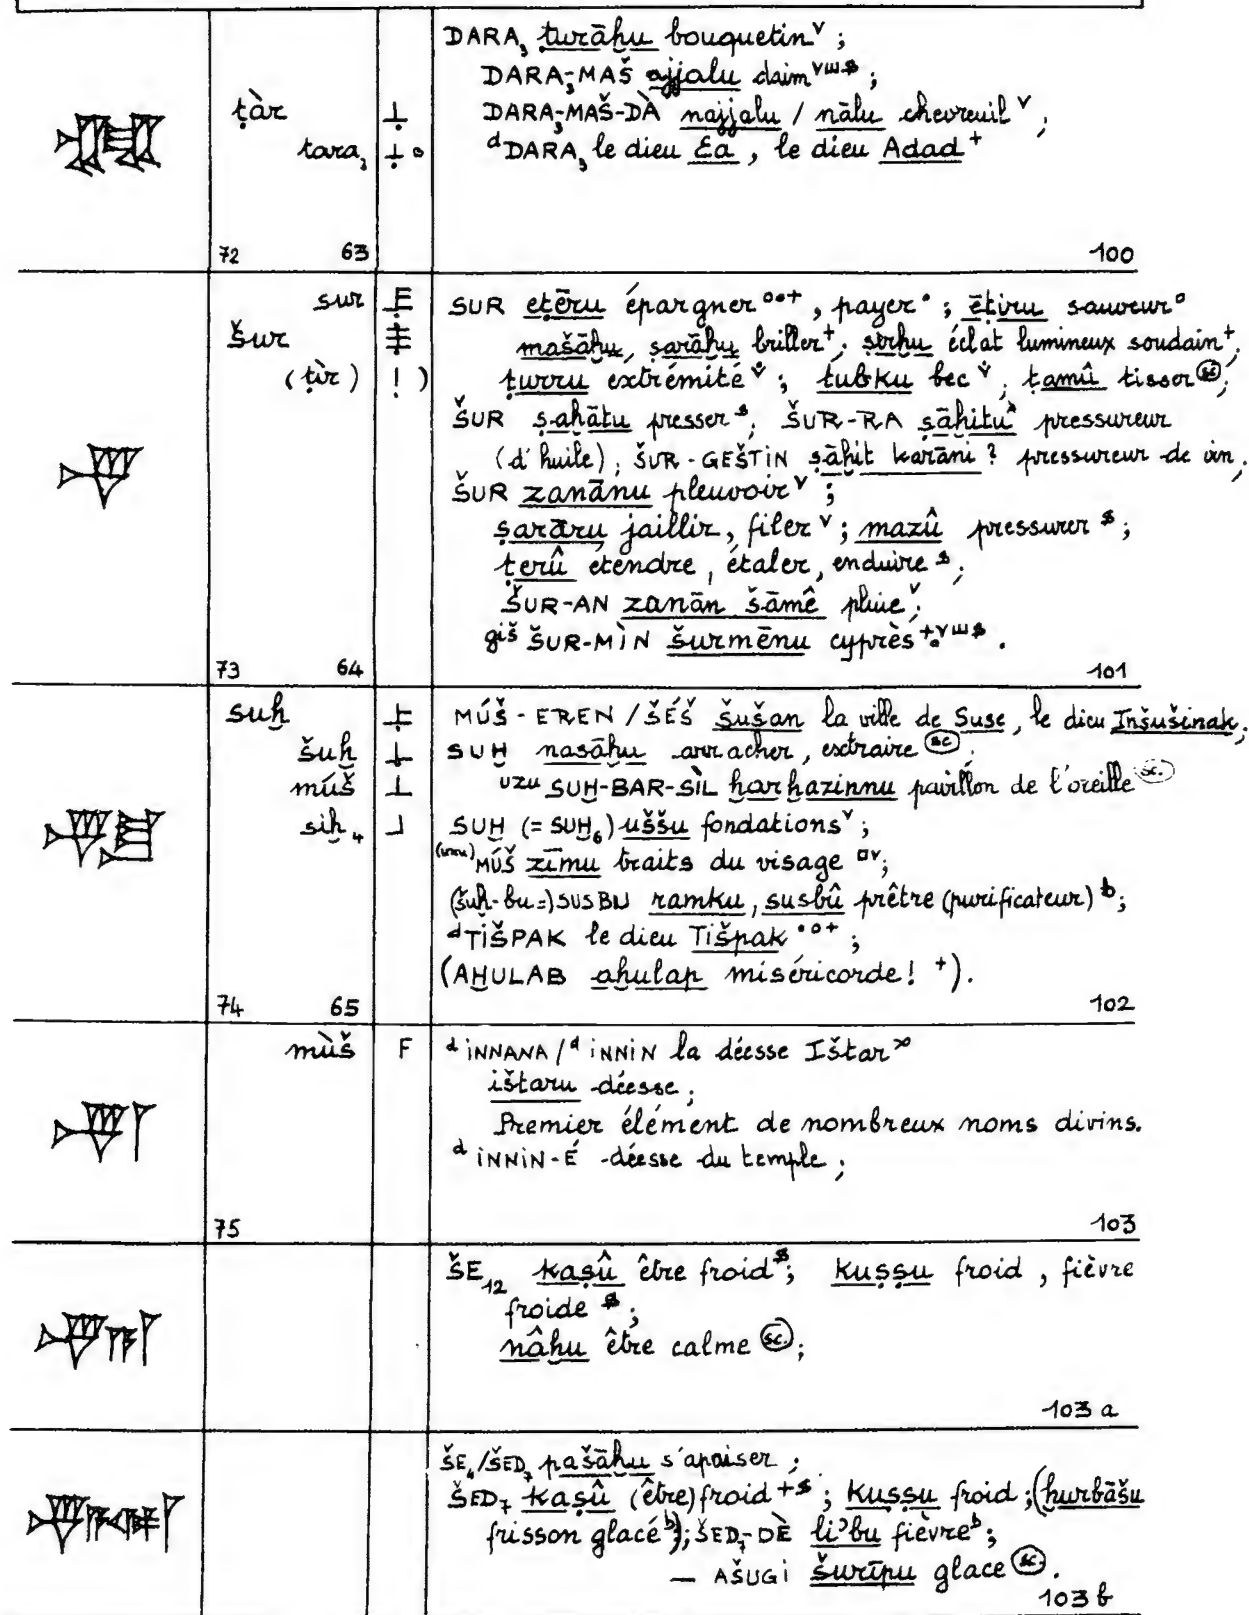 DARA₃ turāḫu bouquetin ᵛ ;
DARA₃-MAŠ ajjalu daim ;
ṭàr
DARA₃-MAŠ-DÀ najjalu / nālu chevreuil ᵛ ;
tara₃
ᵈDARA₃ le dieu Ea , le dieu Adad ⁺
72 63 100
sur
SUR eṭēru épargner °°⁺ , payer • ; ēṭiru sauveur °
šur
mašāḫu, ṣarāḫu briller ⁺ ; ṣirḫu éclat lumineux soudain ⁺ ;
(ṭìr) ! )
ṭurru extrémité ; tubku bec ; ṭamû tisser (sc) ;
ŠUR ṣaḫātu presser ; ŠUR-RA ṣāḫitu pressureur
(d'huile) ; ŠUR-GEŠTIN ṣāḫit karāni ? pressureur de vin ;
ŠUR zanānu pleuvoir ᵛ ;
ṣarāru jaillir, filer ᵛ ; mazû pressurer ;
ṭerû étendre, étaler, enduire ;
ŠUR-AN zanān šāmê pluie ᵛ ;
giš ŠUR-MÌN šurmēnu cyprès .
73 64 101
suḫ
MÚŠ-EREN / ŠÉŠ Šušan la ville de Suse, le dieu Inšušinak ;
šuḫ
SUḪ nasāḫu arracher, extraire (sc) ;
múš
uzu SUḪ-BAR-SÌL ḫarḫazinnu pavillon de l'oreille (sc.)
siḫ₄
SUḪ (= SUḪ₆) uššu fondations ᵛ ;
MÚŠ zīmu traits du visage ;
(šuḫ-bu =) SUSBU ramku, susbû prêtre (purificateur) ᵇ ;
ᵈTIŠPAK le dieu Tišpak •°⁺ ;
(AḪULAB aḫulap miséricorde ! ⁺).
74 65 102
mùš F
ᵈINNANA / ᵈINNIN la déesse Ištar
ištaru déesse ;
Premier élément de nombreux noms divins.
ᵈINNIN-É déesse du temple ;
75 103
ŠE₁₂ kaṣû être froid ; kuṣṣu froid , fièvre
froide ;
nâḫu être calme (sc.) ;
103 a
ŠE₄/ŠED₇ pašāḫu s'apaiser ;
ŠED₇ kaṣû (être) froid ; kuṣṣu froid ; (ḫurbāšu
frisson glacé ᵇ) ; ŠED₇-DÈ li'bu fièvre ᵇ ;
— AŠUGI šurīpu glace (sc.) .
103 b